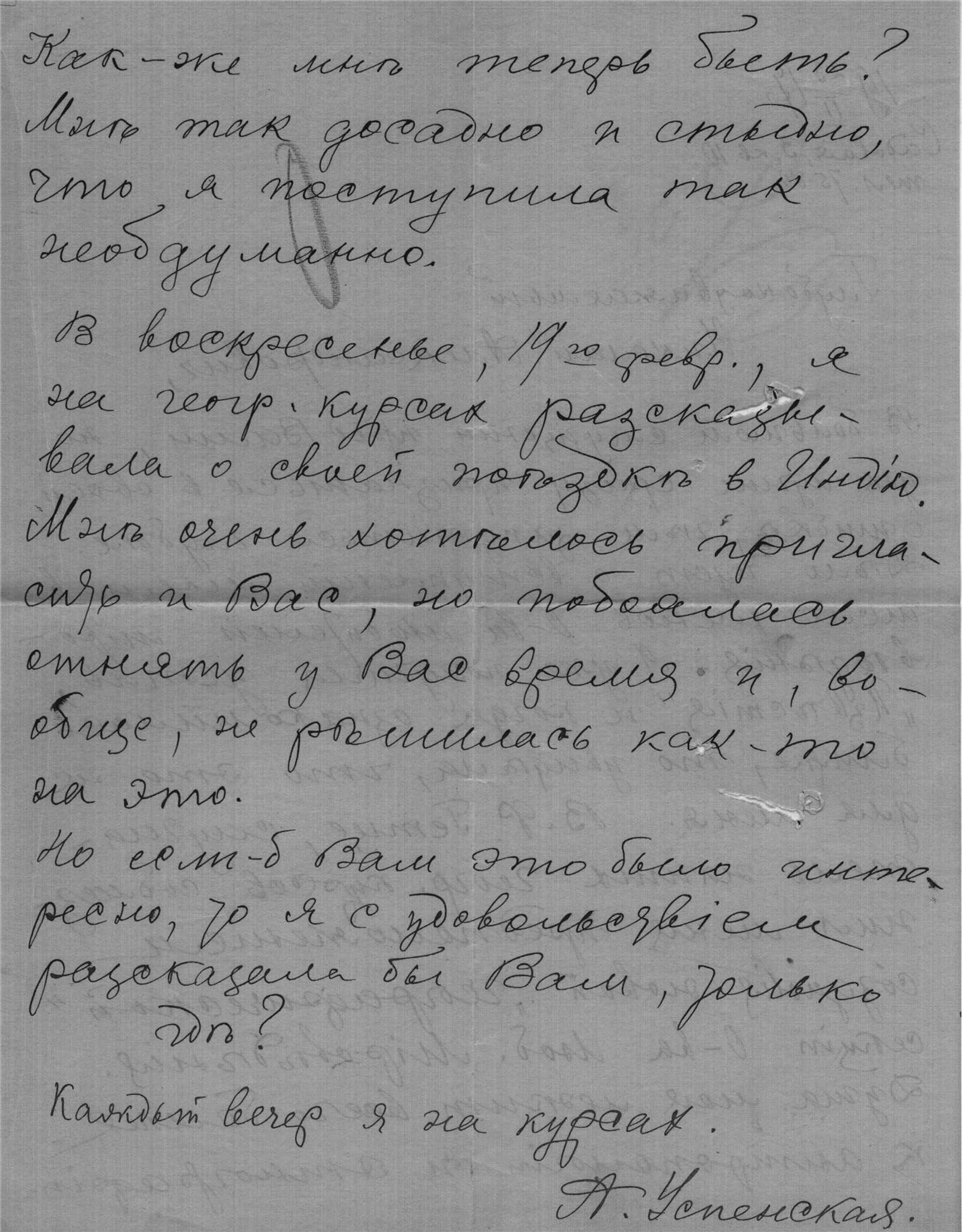 Как-же мнѣ теперь быть?
Мнѣ так досадно и стыдно,
что я поступила так
необдуманно.
В воскресенье, 19го февр., я
на геогр. курсах разсказы-
вала о своей поѣздкѣ в Индію.
Мнѣ очень хотѣлось пригла-
сить и Вас, но побоялась
отнять у Вас время и, во-
обще, не рѣшилась как-то
на это.
Но если-б Вам это было инте-
ресно, то я с удовольствіем
разсказала бы Вам, только
гдѣ?
Каждый вечер я на курсах.
А. Успенская.